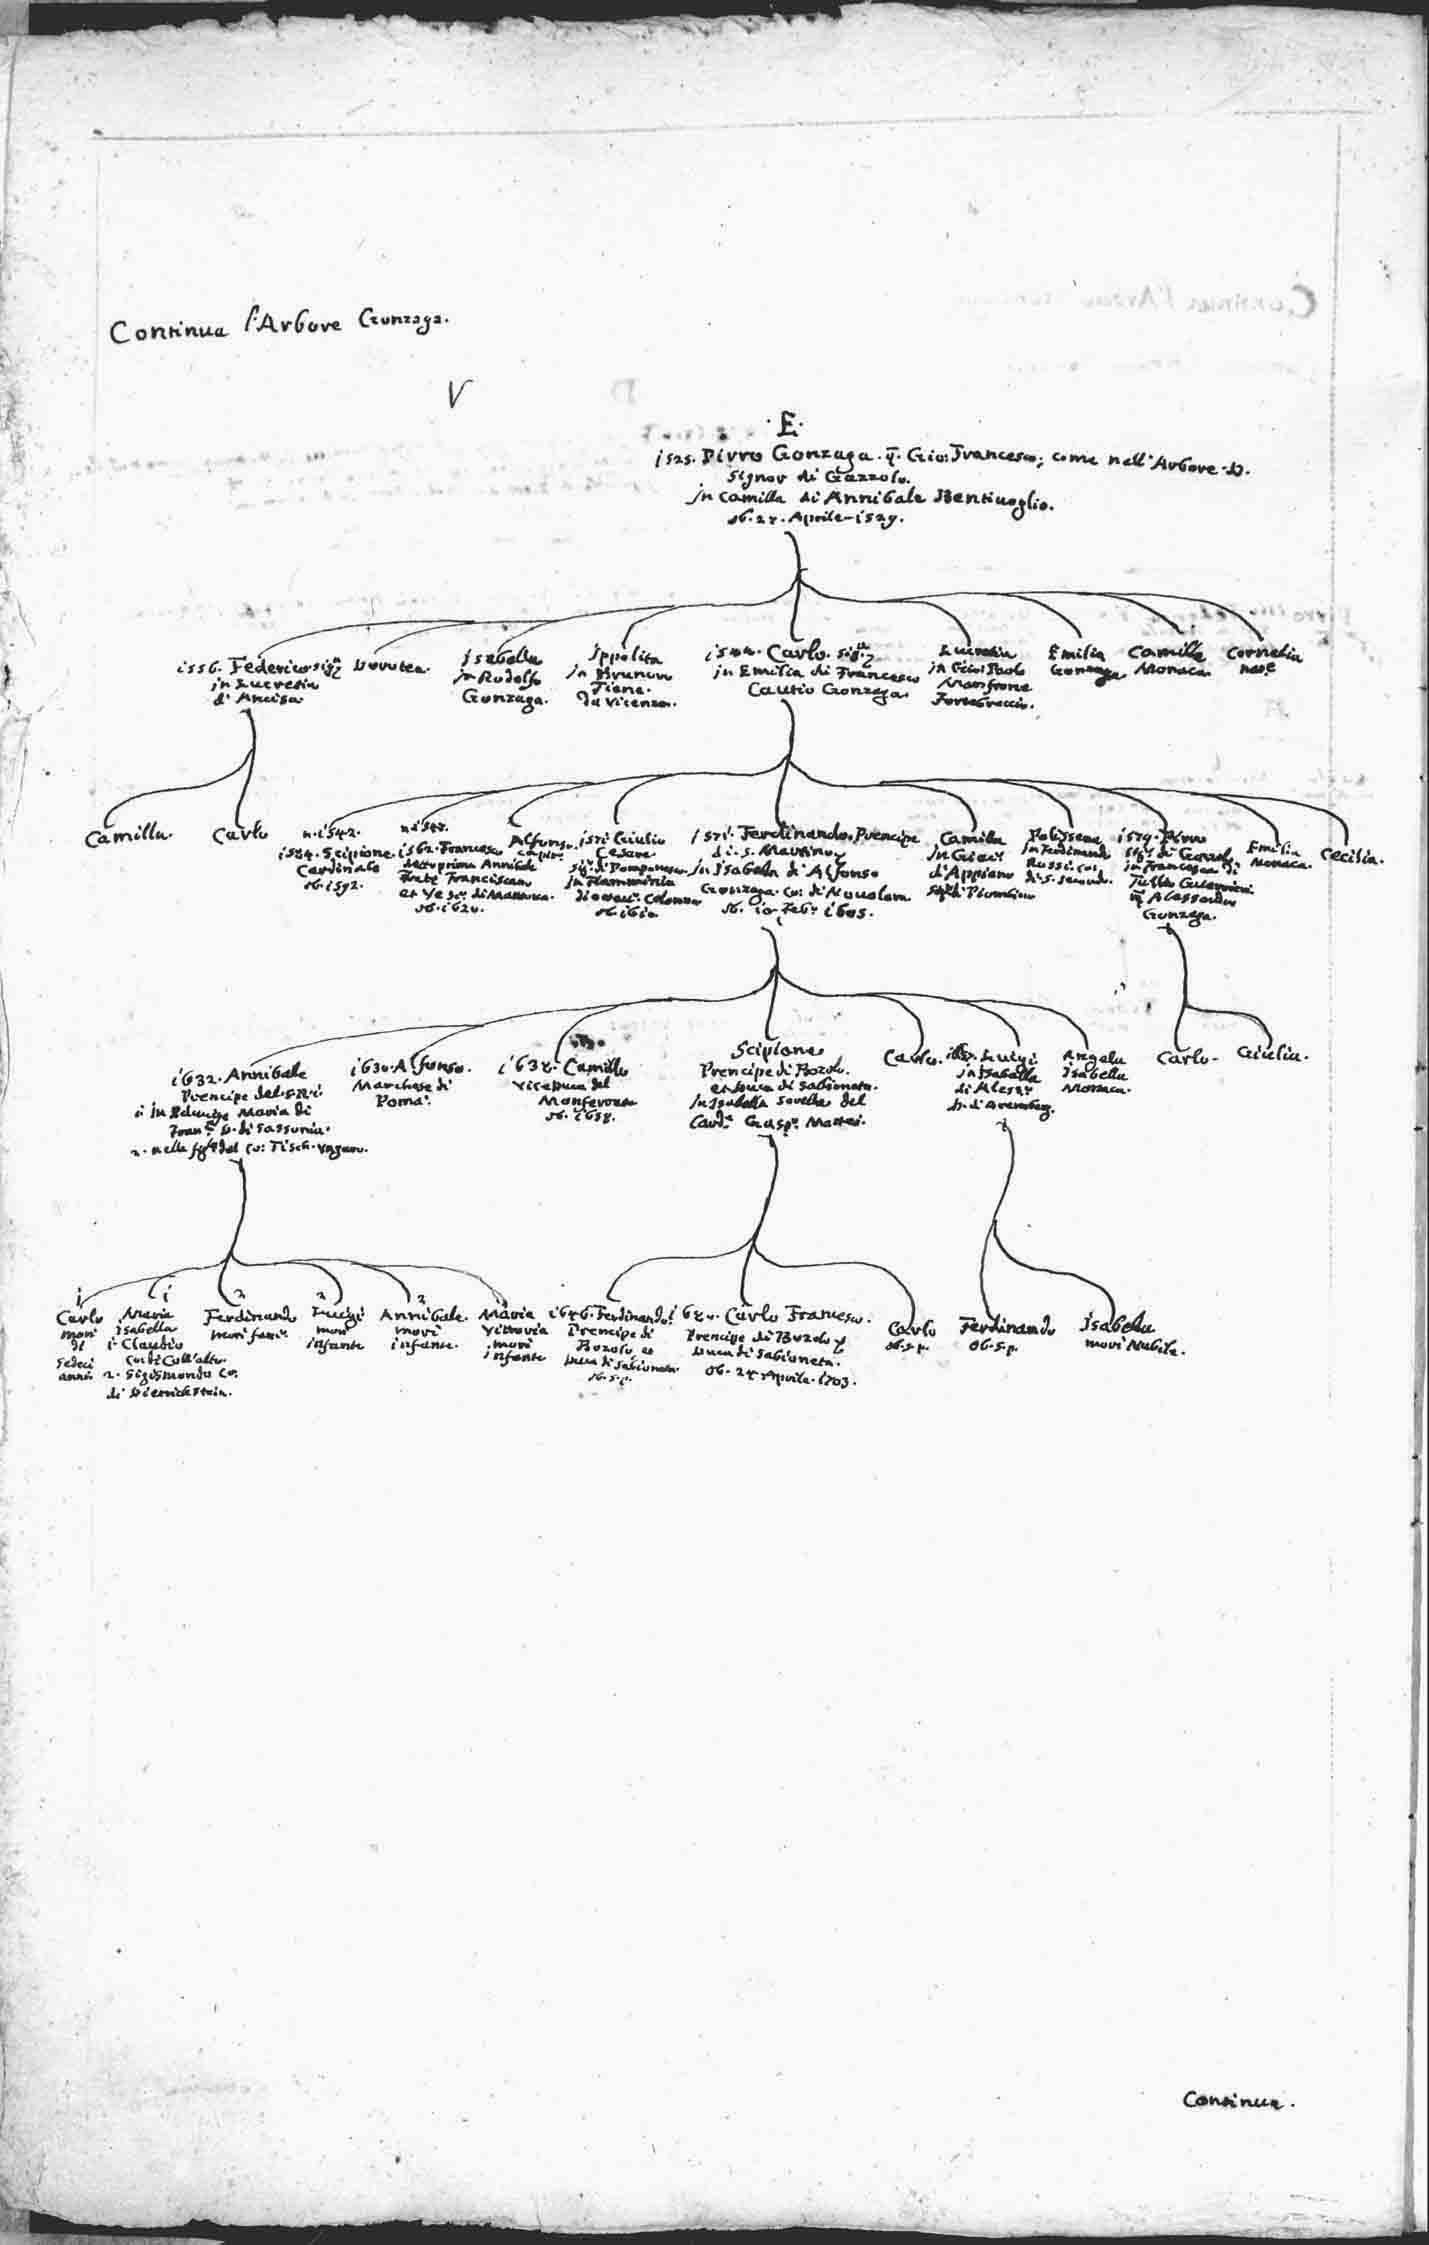 Continua l'Arbore Gonzaga.
V
.E.
1525. Pirro Gonzaga. q. Gio: Francesco; come nell'Arbore. D.
Signor di Gazzolo.
in Camilla di Annibale Bentivoglio.
ob. 27. Aprile-1529.
1556. Federico sigr
in Lucretia
d'Ancisa
Dorotea.
Isabella
in Rodolfo
Gonzaga.
Ippolita
in Brunoro
Tiene.
da Vicenza.
Carlo. sigr
in Emilia di Francesco
Cautio Gonzaga.
Lucretia
in Gio: Paolo
Manfrone
Fortebraccio.
Emilia
Gonzaga
Camilla
Monaca.
Cornelia
Camilla.
Carlo
n. 1542.
1584. Scipione
Cardinale
ob. 1592.
1562. Francesco
detto prima Annibale
Frate Franciscano
et Vescо. di Mantova.
ob. 1620.
Alfonso
1571 Giulio
Cesare
sigr. di Pomponesco
in Flamminia
Colonna
ob. 1610.
1571. Ferdinando. Prencipe
di. S. Martino
in Isabella di Alfonso
Gonzaga. Co: di Novolara
ob. 10. Febr. 1605.
Camilla
in Giac:
d'Appiano
Sigr di Piombino
Polissena
in Ferdinando
Rossi. co:
di S. Secondo.
1579. Pirro
sigr di Gazzolo
in Francesca di
Tullo Guerrieri
Alessandro
Gonzaga.
Emilia
Monaca.
Cecilia.
1632. Annibale
Prencipe del. S.R.I.
1 in Edwige Maria di
Franc. D. di Sassonia.
2. nella figla del Co: Tisch. Ungaro.
1630. Alfonso.
Marchese di
Poma.
1638. Camillo
Viceduca del
Monferrato
ob. 1658.
Scipione
Prencipe di Bozolo.
et Duca di Sabioneta.
in Isabella Sorella del
Card. Gasp. Mattei.
Carlo.
Luigi
in Isabella
di Aless.
D. d'Aremberg.
Angela
Isabella
Monaca.
Carlo.
Giulia.
1
Carlo
mori
di
sedeci
anni.
1
Maria
Isabella
1. Claudio
Co: di Coll'alto.
2. Sigismondo Co:
di Dietrichstein.
2
Ferdinando
mori fanc.
2
Luigi
mori
infante
2
Annibale.
mori
infante.
Maria
Vittoria
mori
infante
1676. Ferdinando
Prencipe di
Bozolo et
Duca di Sabioneta.
ob. s. p.
1680. Carlo Francesco.
Prencipe di Bozolo
Duca di Sabioneta.
ob. 27 Aprile. 1703.
Carlo
ob. s. p.
Ferdinando
ob. s. p.
Isabella
mori Nubile.
Continua.